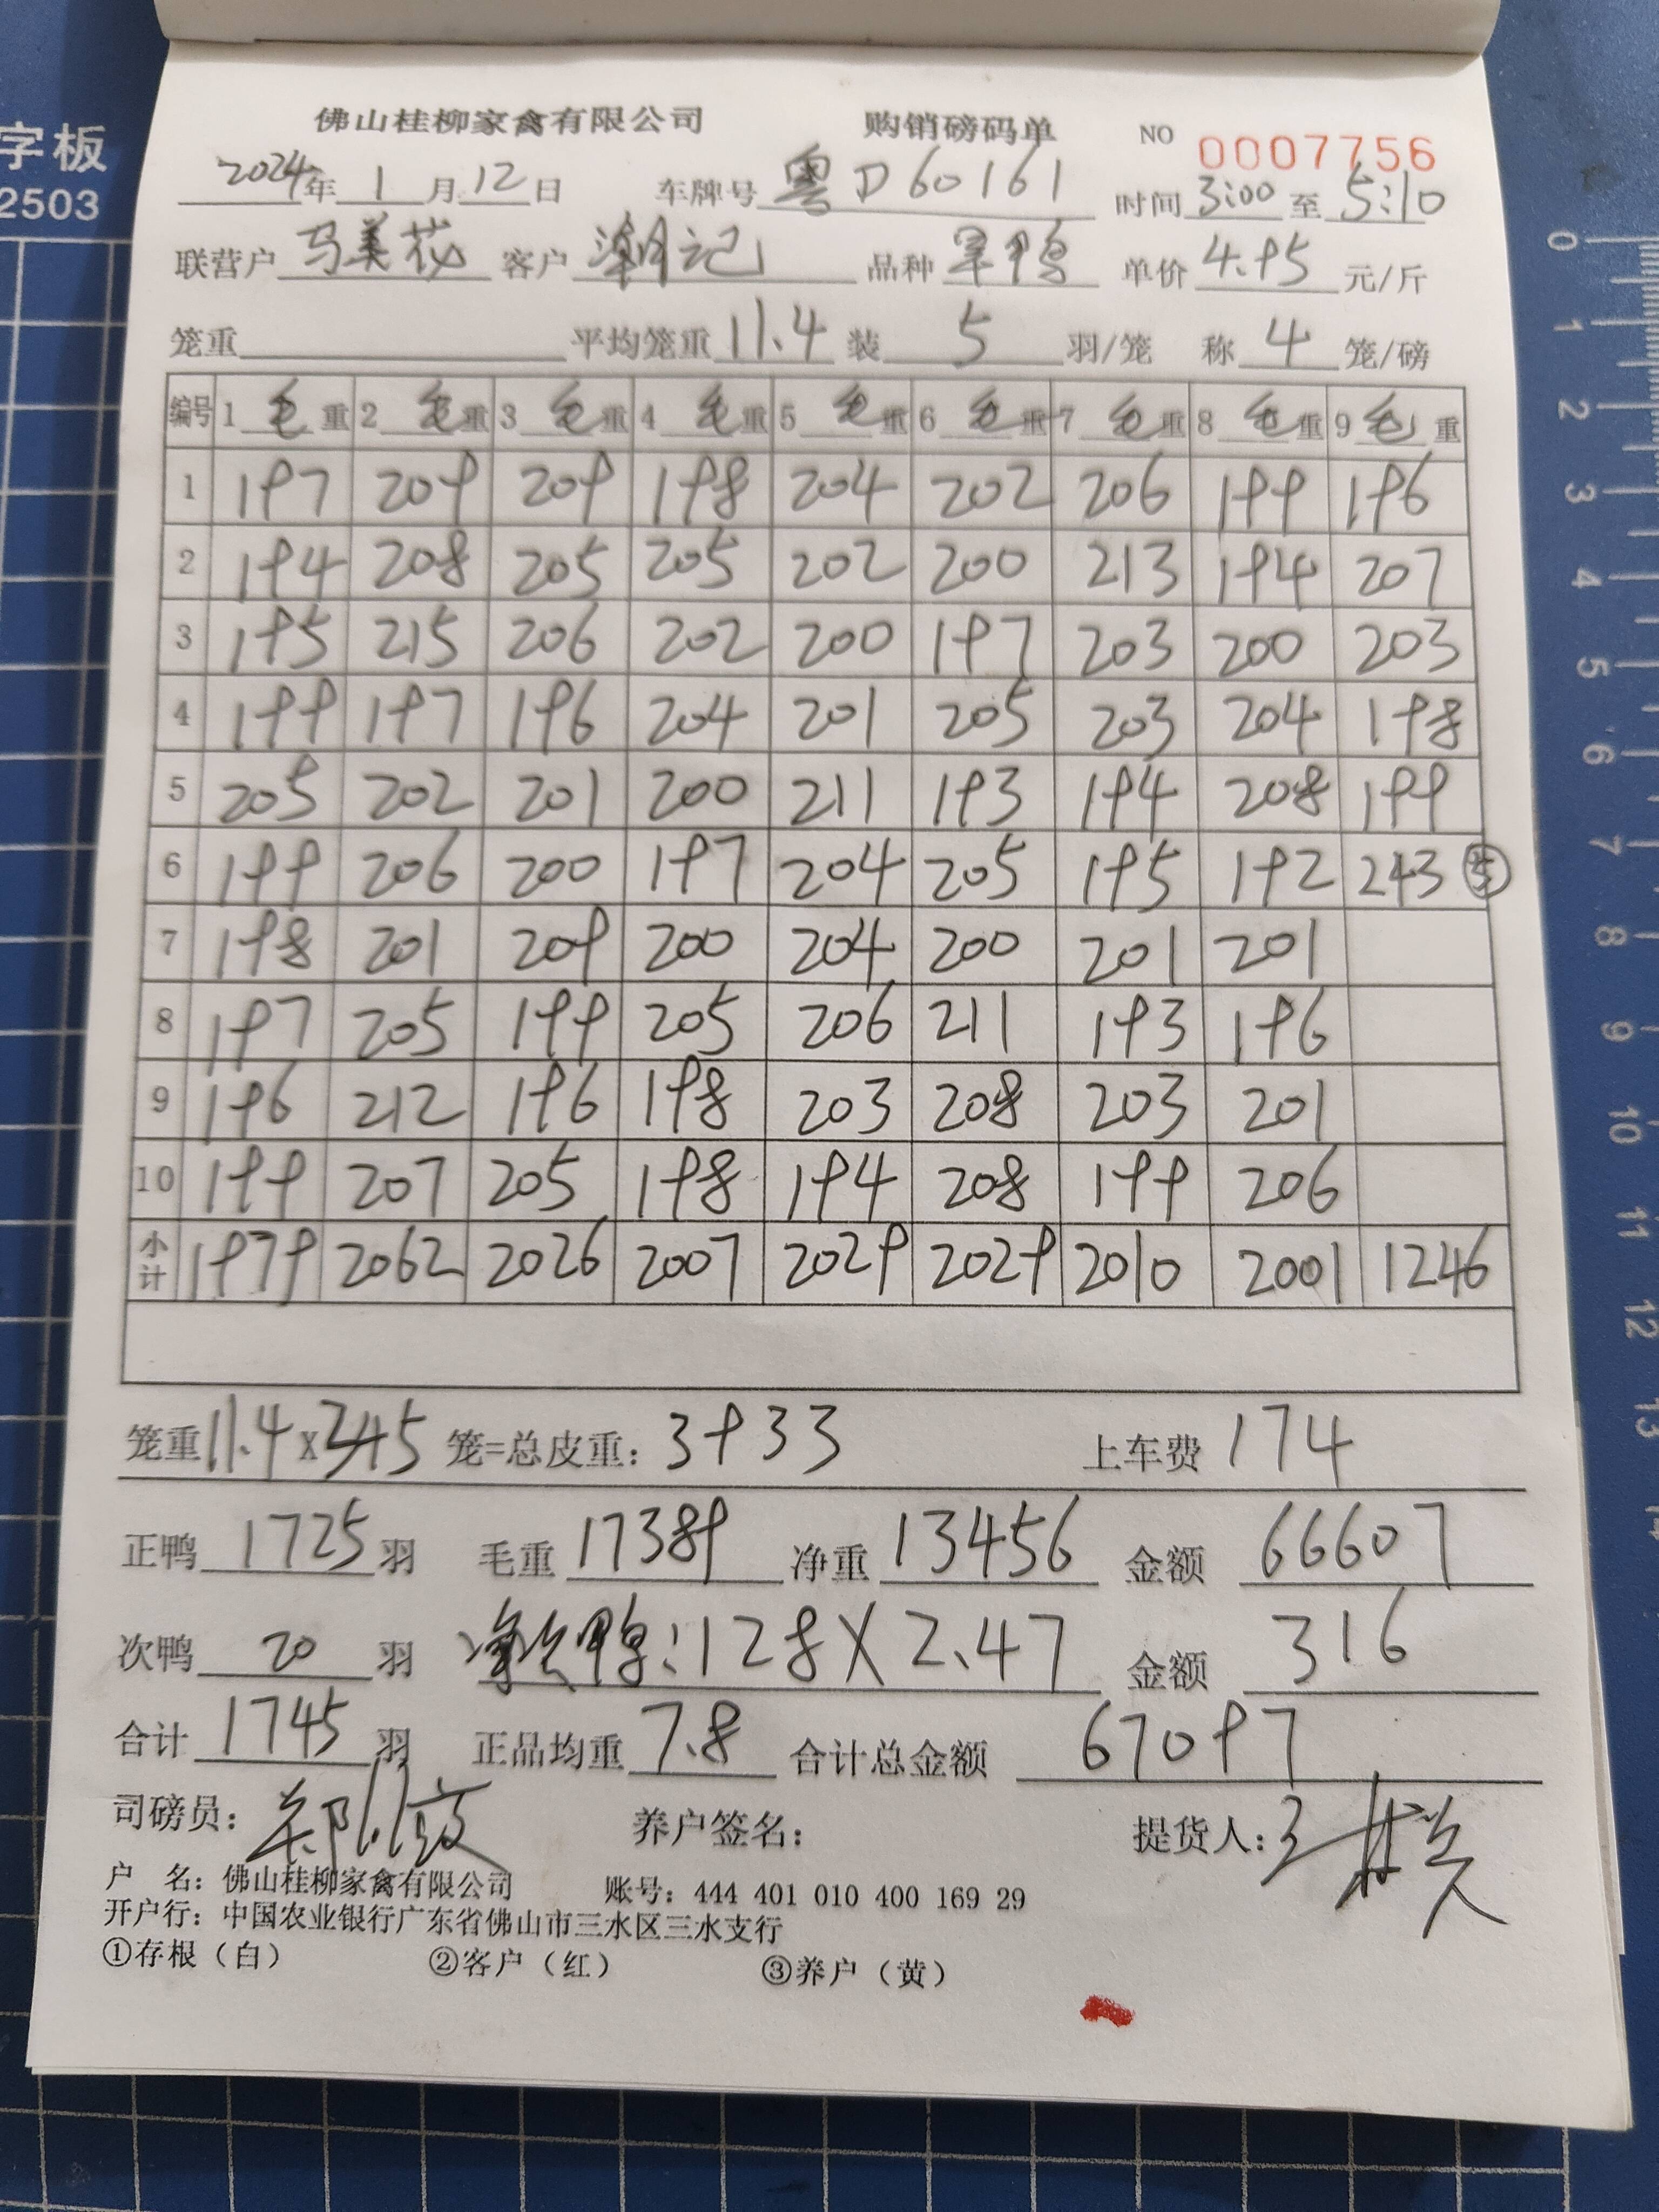 字板
2503
佛山桂柳家禽有限公司 购销磅码单 NO 0007756
2024年 1 月 12 日 车牌号 粤D60161 时间 3:00 至 5:10
联营户 马美花 客户 潮记 品种 旱鸭 单价 4.95 元/斤
笼重 平均笼重 11.4 装 5 羽/笼 称 4 笼/磅
编号 1 毛 重 2 毛 重 3 毛 重 4 毛 重 5 毛 重 6 毛 重 7 毛 重 8 毛 重 9 毛 重
1 197 209 209 198 204 202 206 199 196
2 194 208 205 205 202 200 213 194 207
3 195 215 206 202 200 197 203 200 203
4 199 197 196 204 201 205 203 204 198
5 205 202 201 200 211 193 194 208 199
6 199 206 200 197 204 205 195 192 243 ⑤
7 198 201 209 200 204 200 201 201
8 197 205 199 205 206 211 193 196
9 196 212 196 198 203 208 203 201
10 199 207 205 198 194 208 199 206
小计 1979 2062 2026 2007 2029 2029 2010 2001 1246
笼重 11.4 x 345 笼=总皮重: 3933 上车费 174
正鸭 1725 羽 毛重 17389 净重 13456 金额 66607
次鸭 20 羽 鸭:128 X 2.47 金额 316
合计 1745 羽 正品均重 7.8 合计总金额 67097
司磅员: 郑 养户签名: 提货人:
户 名: 佛山桂柳家禽有限公司 账号: 444 401 010 400 169 29
开户行: 中国农业银行广东省佛山市三水区三水支行
①存根(白) ②客户(红) ③养户(黄)
0
1
2
3
4
5
6
7
8
9
10
11
12
13
14